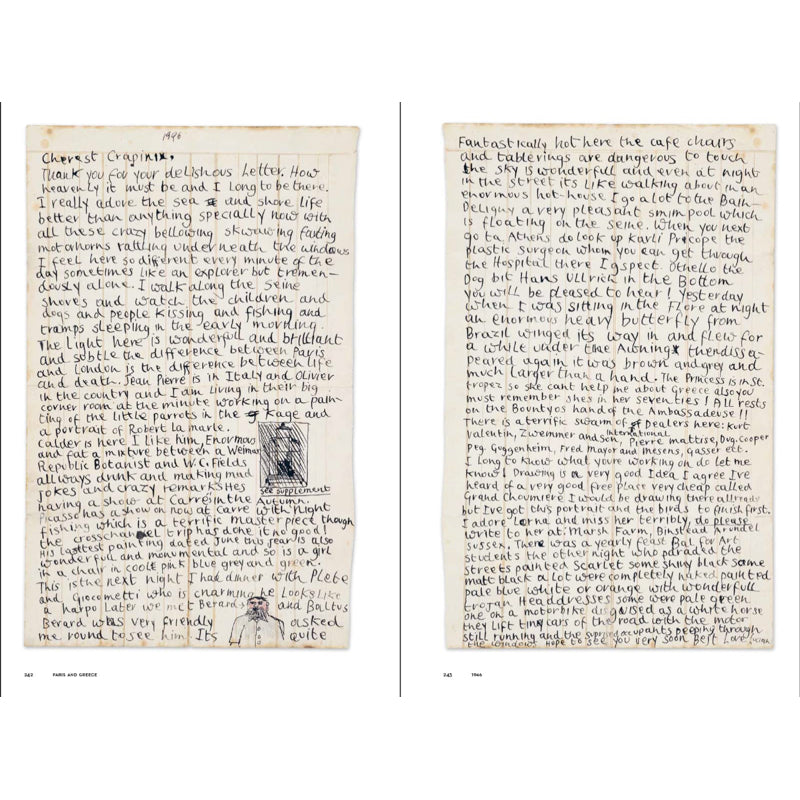 1946
Cherest Crapinix,
Thank you for your delishous Letter. How
heavenly it must be and I long to be there.
I really adore the sea and shore life
better than anything specially now with
all these crazy bellowing skwawking farting
motahorns rattling underneath the windows
I feel here so different every minute of the
day sometimes like an explorer but tremen-
dously alone. I walk along the Seine
shores and watch the children and
dogs and people kissing and fishing and
tramps sleeping in the early morning.
The Light here is wonderful and brilliant
and subtle the difference between Paris
and London is the difference between life
and death. Jean Pierre is in Italy and Olivier
in the country and I am living in their big
corner room at the minute working on a pain-
ting of the little parrots in the Kage and
a portrait of Robert la marle.
Calder is here I like him, Enormous
and fat a mixture between a Weimar
Republic Botanist and W.C. Fields
allways drunk and making mad
jokes and crazy remarks Hes
see supplement
having a show at Carré in the Autumn.
Picasso has a show on now at Carré with Night
fishing which is a terrific masterpiece though
the crosschannel trip has done it no good!
His lasttest painting dated June this year is also
wonderful and monumental and so is a girl
in a chair in cool pink blue grey and green.
This is the next night I had dinner with Plete
and Giocometti who is charming he Looks like
a harpo Later we met Berard and Baltus
Berard was very friendly asked
me round to see him Its quite
242 PARIS AND GREECE
Fantastically hot here the cafe chairs
and tablerings are dangerous to touch
the sky is wonderful and even at night
in the street its Like walking about in an
enormous hot-house I go a lot to the Bain-
Deligny a very pleasant swimpool which
is floating on the seine. When you next
go to Athens do look up Karli Procope the
plastic surgeon whom you can get through
the Hospital there I gspect. Othello the
Dog bit Hans Ullrich in the Bottom
you will be pleased to hear! Yesterday
when I was sitting in the Flore at night
an enormous heavy butterfly from
Brazil winged its way in and flew for
a while under the Awning then dissa-
peared again it was brown and grey and
much larger than a hand. The Princess is in St.
tropez so she cant help me about Greece also you
must remember shes in her seventies! ALL rests
on the Bountyos hand of the Ambassadeuse!!
There is a terrific swarm of international Dealers here: Kurt
Valentin, Zwemmer and Son, Pierre mattise, Dug. Cooper
Peg. Guggenheim, Fred Mayor and mesens, Gasser ett.
I long to know what youre working on do let me
know! Drawing is a very good Idea I agree Ive
heard of a very good free place very cheap called
Grand Choumiere I would be drawing there allready
but Ive got this portrait and the birds to finish first.
I adore Lorna and miss her terribly, do please
write to her at: Marsh Farm, Binstead Arundel
Sussex. There was a yearly feast Bal for Art
students the other night who paraded the
streets painted Scarlet some shiny black some
matt black a lot were completely naked painted
pale blue white or orange with wonderfull
trojan Headdresses some were pale green
one on a motorbike disguised as a white horse
they lift tiny cars off the road with the motor
still running and the suprised occupants peeping through
the windows Hope to see you very soon Best Love
243 1946